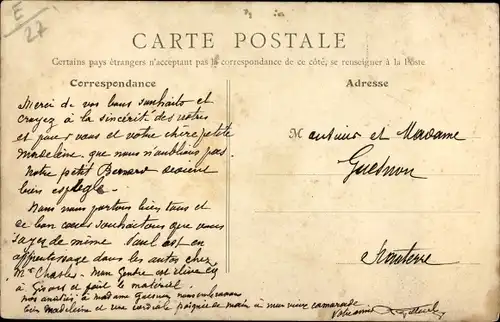 E
27
CARTE POSTALE
Certains pays étrangers n'acceptant pas la correspondance de ce côté, se renseigner à la Poste
Correspondance
Adresse
Merci de vos bons souhaits et
croyez à la sincérité des notres
et pour vous et votre chère petite
Madeleine que nous n'oublions pas.
Notre petit Bernard devient
bien espiègle.
Nous nous portons bien tous et
de bon coeur souhaitons que vous
soyez de même Paul est en
apprentissage dans les autos chez
Mr Charles. Mon Gendre est
à Gisors et fait le matériel.
nos amitiés à madame Guesnon
bien Madeleine et une cordiale poignée de main à mon vieux camarade
Monsieur et Madame
Guesnon